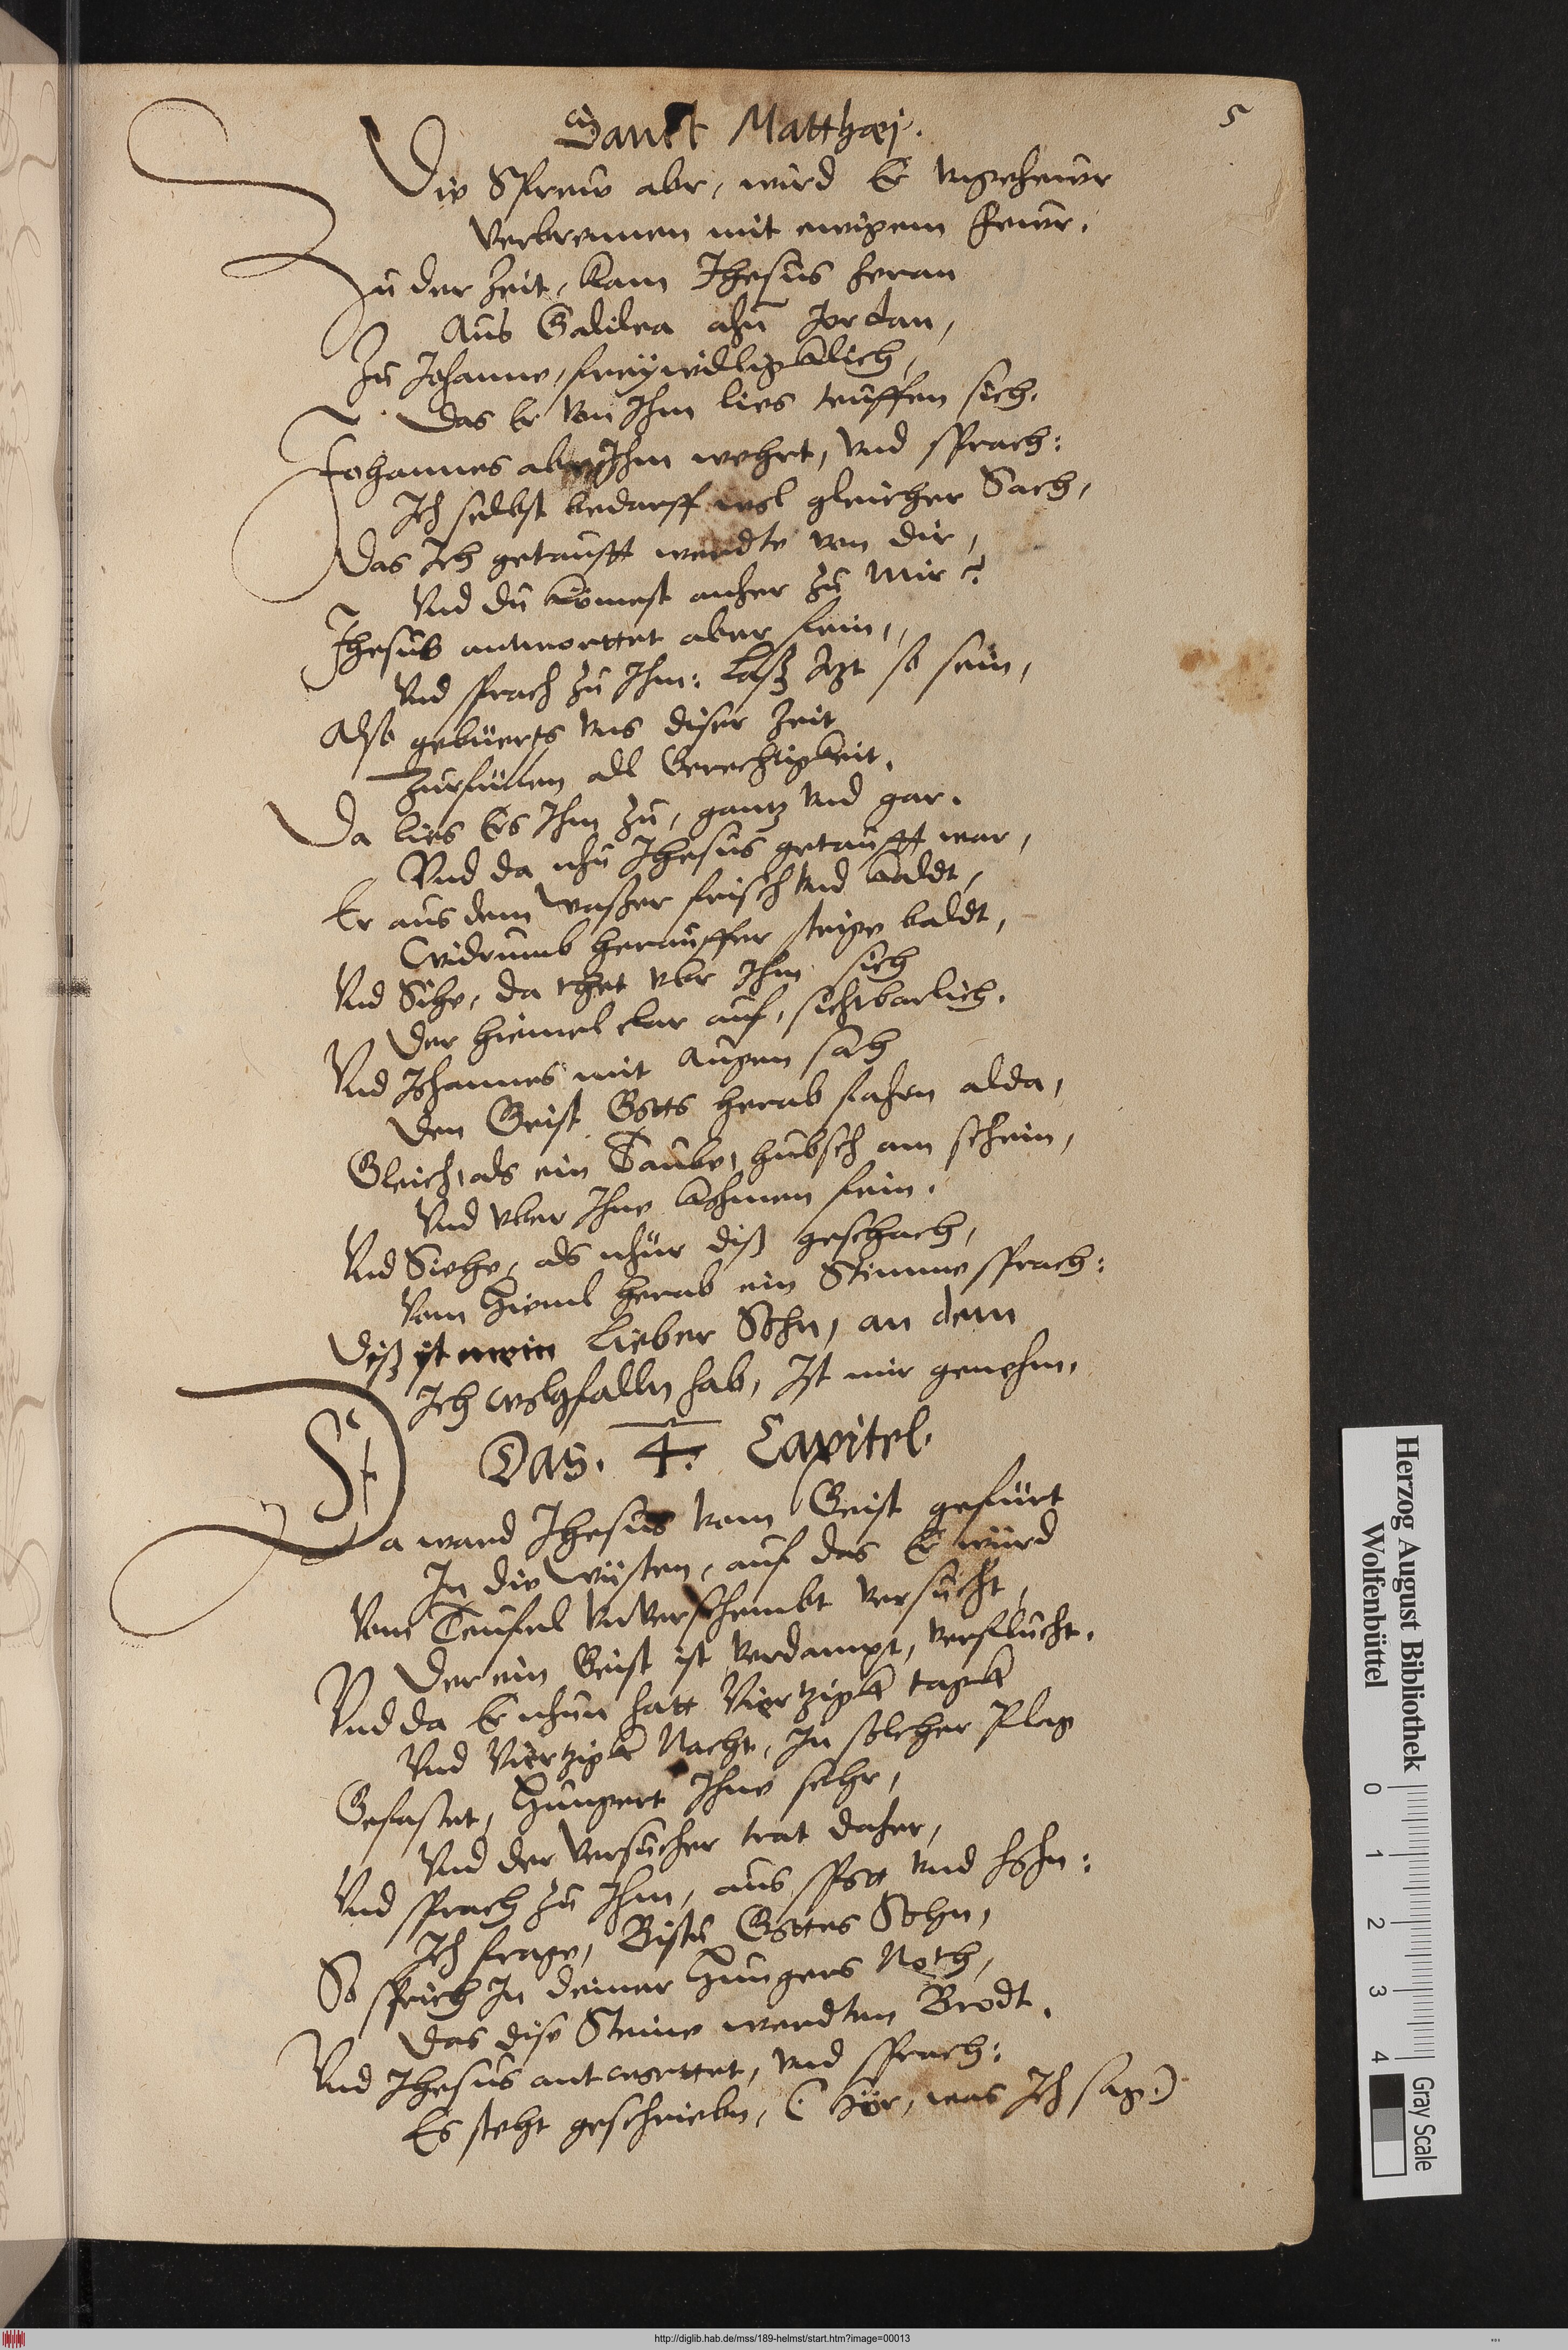 5
Sanct Matthæj.
Die Sprew abr, wird Er vngehewr
Verbrennen mit ewigem Fewr.
Zu der Zeit, kam Jhesus heran
Aus Galilea ahn Jordan,
Zu Johanne, freywilligklich,
Das Er von Ihm lies teuffen sich.
Johannes abr Ihm wehrt, vnd sprach:
Ich selbst bedarff wol gleicher Sach,
Das Ich getaufft werdte von dir,
Vnd du kömest anher zu mir?
Jhesus antworttet aber fein,
Vnd sprach zu Ihm: Laß Izt so sein,
Also gebüerts vns diser Zeit
Zurfüllen all Gerechtigkeit.
Da lies Ers Ihm zu, gantz vnd gar.
Vnd da nhu Jhesus getaufft war,
Er aus dem Waßer frisch vnd kaldt,
Widrumb herauffer steige baldt,
Vnd Sihe, da thet vbr Ihm sich
Der Hiemel klar auf, sichtbarlich.
Vnd Johannes mit Augen sah
Den Geist Gotts herab fahrn alda,
Gleich, als ein Taube, hübsch am schein,
Vnd vber Ihne kohmen fein.
Vnd Siehe, als nhur diß geschach,
Vom Hieml herab ein Stimme sprach:
Diß ist mein Lieber Sohn, an dem
Ich wolgfalln hab, Ist mir genehm.
Das. 4. Capitel.
Da ward Jhesus vom Geist gefürt
In die Wüsten, auf das Er würd
Vom Teufel vnverschembt versucht,
Der ein Geist ist verdampt, verflucht.
Vnd da Er nhun hatt Viertzigk tagk
Vnd Viertzigk Nacht, In solcher Plag
Gefastet, Hungert Ihne sehr,
Vnd der Versucher trat daher,
Vnd sprach zu Ihm, aus spott vnd Hohn:
Ich frage, Bistu Gottes Sohn,
So sprich In deiner Hungers Noth,
Das dise Steine werdten Brodt.
Vnd Jhesus antworttet, vnd sprach:
Es steht geschriebn, (Hör, was Ich sag.)
Herzog August Bibliothek
Wolfenbüttel
0 1 2 3 4 Gray Scale
http://diglib.hab.de/mss/189-helmst/start.htm?image=00013